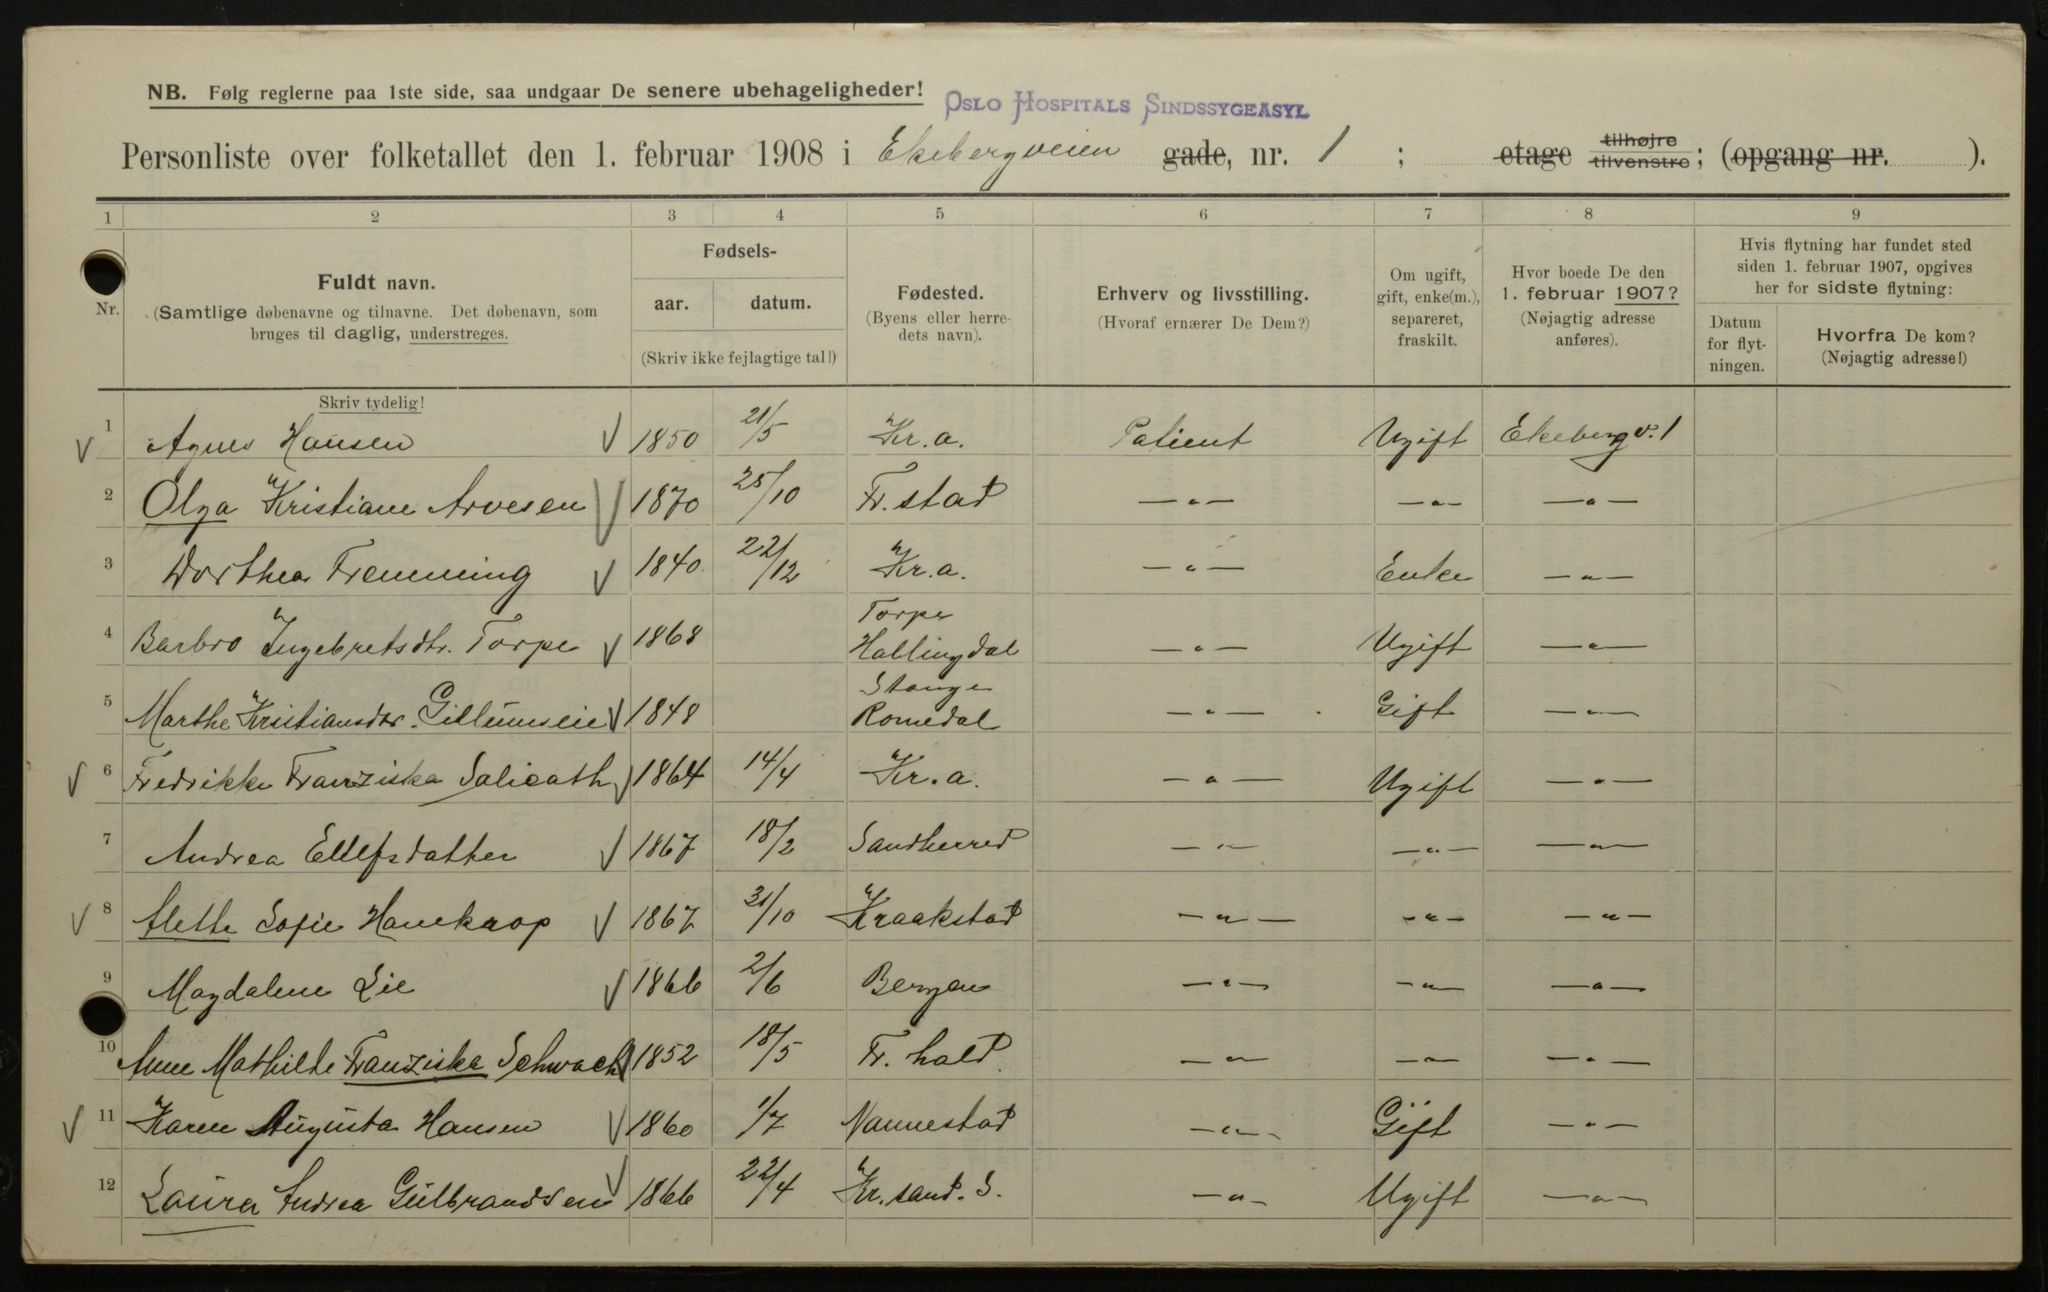 NB. Følg reglerne paa 1ste side, saa undgaar De senere ubehageligheder!
OSLO HOSPITALS SINDSSYGEASYL
Personliste over folketallet den 1. februar 1908 i Ekebergveien gade, nr. 1 ; etage tilhøjre tilvenstre; (opgang nr. ).
1 2 3 4 5 6 7 8 9
Nr.
Fuldt navn.
(Samtlige døbenavne og tilnavne. Det døbenavn, som
bruges til daglig, understreges.
Fødsels-
aar. datum.
(Skriv ikke fejlagtige tal!)
Fødested.
(Byens eller herre-
dets navn).
Erhverv og livsstilling.
(Hvoraf ernærer De Dem?)
Om ugift,
gift, enke(m.),
separeret,
fraskilt.
Hvor boede De den
1. februar 1907?
(Nøjagtig adresse
anføres).
Hvis flytning har fundet sted
siden 1. februar 1907, opgives
her for sidste flytning:
Datum
for flyt-
ningen.
Hvorfra De kom?
(Nøjagtig adresse!)
Skriv tydelig!
1 Agnes Hansen 1850 21/5 Kr.a. Patient Ugift Ekeberg v. 1
2 Olga Kristiane Arvesen 1870 25/10 Fr. stad —„— —„— —„—
3 Dorthea Fremming 1840 22/12 Kr.a. —„— Enke —„—
4 Barbro Ingebretsdtr. Torpe 1868 Torpe Hallingdal —„— Ugift —„—
5 Marthe Kristiansdtr. 1848 Stange Romedal —„— Gift —„—
6 Fredrikke Franziska Salicath 1864 14/4 Kr.a. —„— Ugift —„—
7 Andrea Ellefsdatter 1867 18/2 Sandherred —„— —„— —„—
8 Alette Sofie 1867 31/10 Kraakstad —„— —„— —„—
9 Magdalene Lie 1866 2/6 Bergen —„— —„— —„—
10 Anne Mathilde Franziska Schwach 1852 18/5 Fr. hald —„— —„— —„—
11 Karen Augusta Hansen 1860 1/7 Nannestad —„— Gift —„—
12 Laura Andrea Gulbrandsen 1866 22/4 Kr. sand. S. —„— Ugift —„—